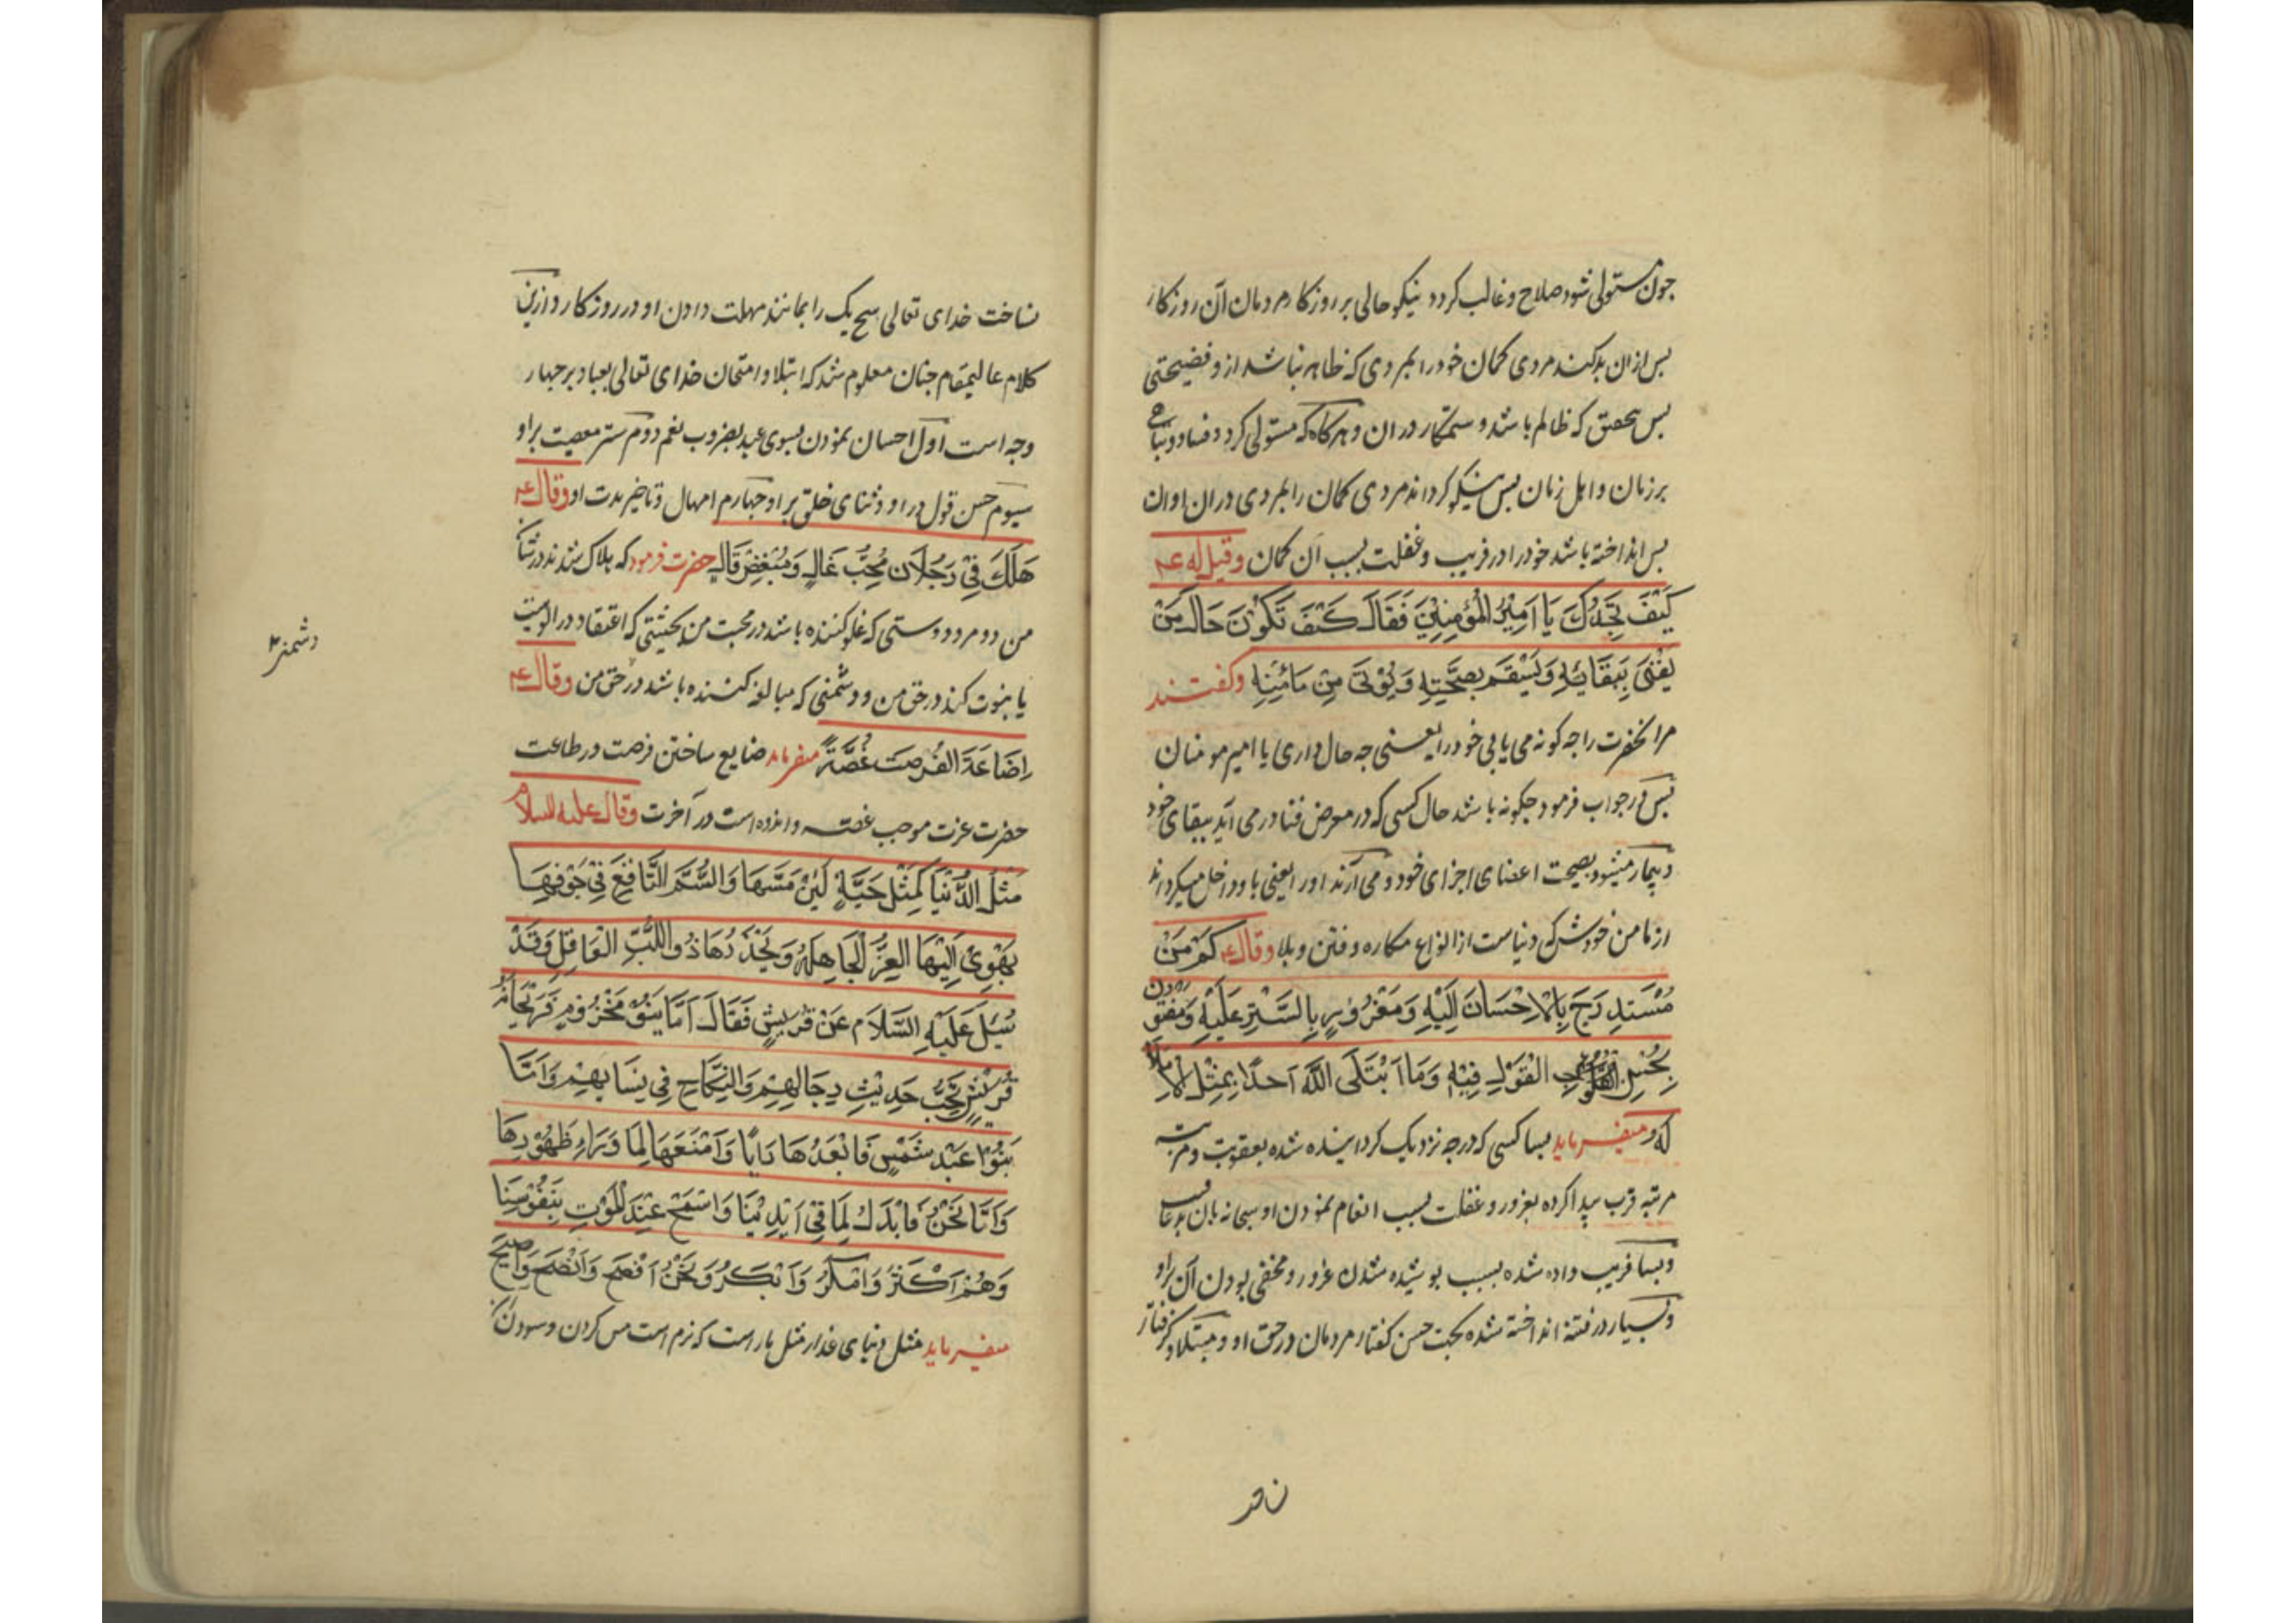 چون مستولی شود صلاح و غالب کردد نیکو حالی بر روزکار مردمان آن روزکار
پس از ان بد کند مردی کمان خود را بمردی که ظاهر نباشد از و فضیحتی
پس بتحقیق که ظالم باشد و ستمکار در ان و هرکاه که مستولی کردد فساد و تباهی
بر زمان و اهل زمان پس نیکو کرداند مردی کمان را بمردی در ان اوان
پس انداخته باشد خود را در فریب و غفلت بسبب آن کمان وقیل له ع
کَیْفَ تَجِدُكَ یَا اَمِیْرَ الْمُؤمِنِیْنَ فَقَالَ کَیْفَ تَکُوْنَ حَالَ مَنْ
یَفْنٰی بِبَقَائِهِ وَیَسْقَمُ بِصِحَّتِهِ وَیُؤتٰی مِنْ مَامَنِهِ و کفتند
مر انحضرت را چه کونه می یابی خود را یعنی چه حال داری یا امیر مومنان
پس در جواب فرمود چکونه باشد حال کسی که در معرض فنا در می آید ببقای خود
و بیمار میشود بصحت اعضای اجزای خود و می آرند او را یعنی با و داخل میکردانند
از مامن خودش که دنیاست از انواع مکاره و فتن و بلا وقال ع کَمْ مِنْ
مُسْتَدرَجٍ بِالْاِحْسَانِ اِلَیْهِ وَمَغْرُوْرٍ بِالسَّتْرِ عَلَیْهِ وَمَفْتُوْنٍ
بِحُسْنِ الْقَوْلِ فِیْهِ وَمَا اَبْتَلَی اللّٰهُ اَحَدًا بِمِثْلِ الْاِمْلَاءِ
لَهُ و میفرماید بسا کسی که درجه نزدیک کردانیده شده بعقوبت و مرتبه
مرتبه قرب پیدا کرده بغرور و غفلت بسبب انعام نمودن او سبحانه بان
و بسا فریب داده شده بسبب پوشیده شدن غرور و مخفی بودن آن براو
و بسیار در فتنه انداخته شده بجهت حسن کفتار مردمان در حق او و مبتلا و کرفتار
نساخت خدای تعالی هیچ یک را بمانند مهلت دادن او در روزکار و ازین
کلام عالیمقام چنان معلوم شد که ابتلا و امتحان خدای تعالی بعباد بر چهار
وجه است اول احسان نمودن بسوی عبد بضروب نعم دوم ستر معصیت براو
سیوم حسن قول در او و ثنای خلق بر او چهارم امهال و تاخیر مدت او وقال ع
هَلَكَ فِیَّ رَجُلَانِ مُحِبٌّ غَالٍ وَمُبْغِضٌ قَالٍ حضرت فرمود که هلاک شدند در شان
من دو مرد دوستی که غلو کننده باشد در محبت من بحیثیتی که اعتقاد در الوهیت
یا بنوت کند در حق من و دشمنی که مبالغه کننده باشد در حق من وقال ع
دشمنی
اِضَاعَةَ الفُرصَتِ غُصَّةٌ میفرماید ضایع ساختن فرصت در طاعت
حضرت عزت موجب غصه و اندوه است در آخرت وقال علیه السلام
مَثَلُ الدُّنْیَا کَمِثْلِ حَیَّةٍ لَیِّنٌ مَسُّهَا وَالسُّمُّ النَّاقِعُ فِیْ جَوْفِهَا
یَهْوِیْ اِلَیْهَا الغِرُّ الْجَاهِلُ وَیَحْذَرُهَا ذُو اللُّبِّ الْعَاقِلُ وَقَدْ
سُئِلَ عَلَیْهِ السَّلَام عَنْ قُرَیْشٍ فَقَالَ اَمَّا بَنُوْ مَخْزُوْمٍ فَرَیْحَانَةُ
قُرَیْشٍ تُحِبُّ حَدِیْثَ رِجَالِهِمْ وَالنِّکَاحَ فِی نِسَائِهِمْ وَاَمَّا
بَنُوْا عَبْدِ شَمْسٍ فَاَبْعَدُهَا رَایًا وَاَمْنَعُهَا لِمَا وَرَاءَ ظُهُوْرِهَا
وَاَمَّا نَحْنُ فَاَبْذَلُ لِمَا فِیْ اَیْدِیْنَا وَاَسْمَحُ عِنْدَ الْمَوْتِ بِنُفُوْسِنَا
وَهُمْ اَکْثَرُ وَاَمْکَرُ وَاَنْکَرُ وَنَحْنُ اَفْصَحُ وَاَنْصَحُ وَاَصْبَحُ
میفرماید مثل دنیای غدار مثل مار است که نرم است مس کردن و سودن